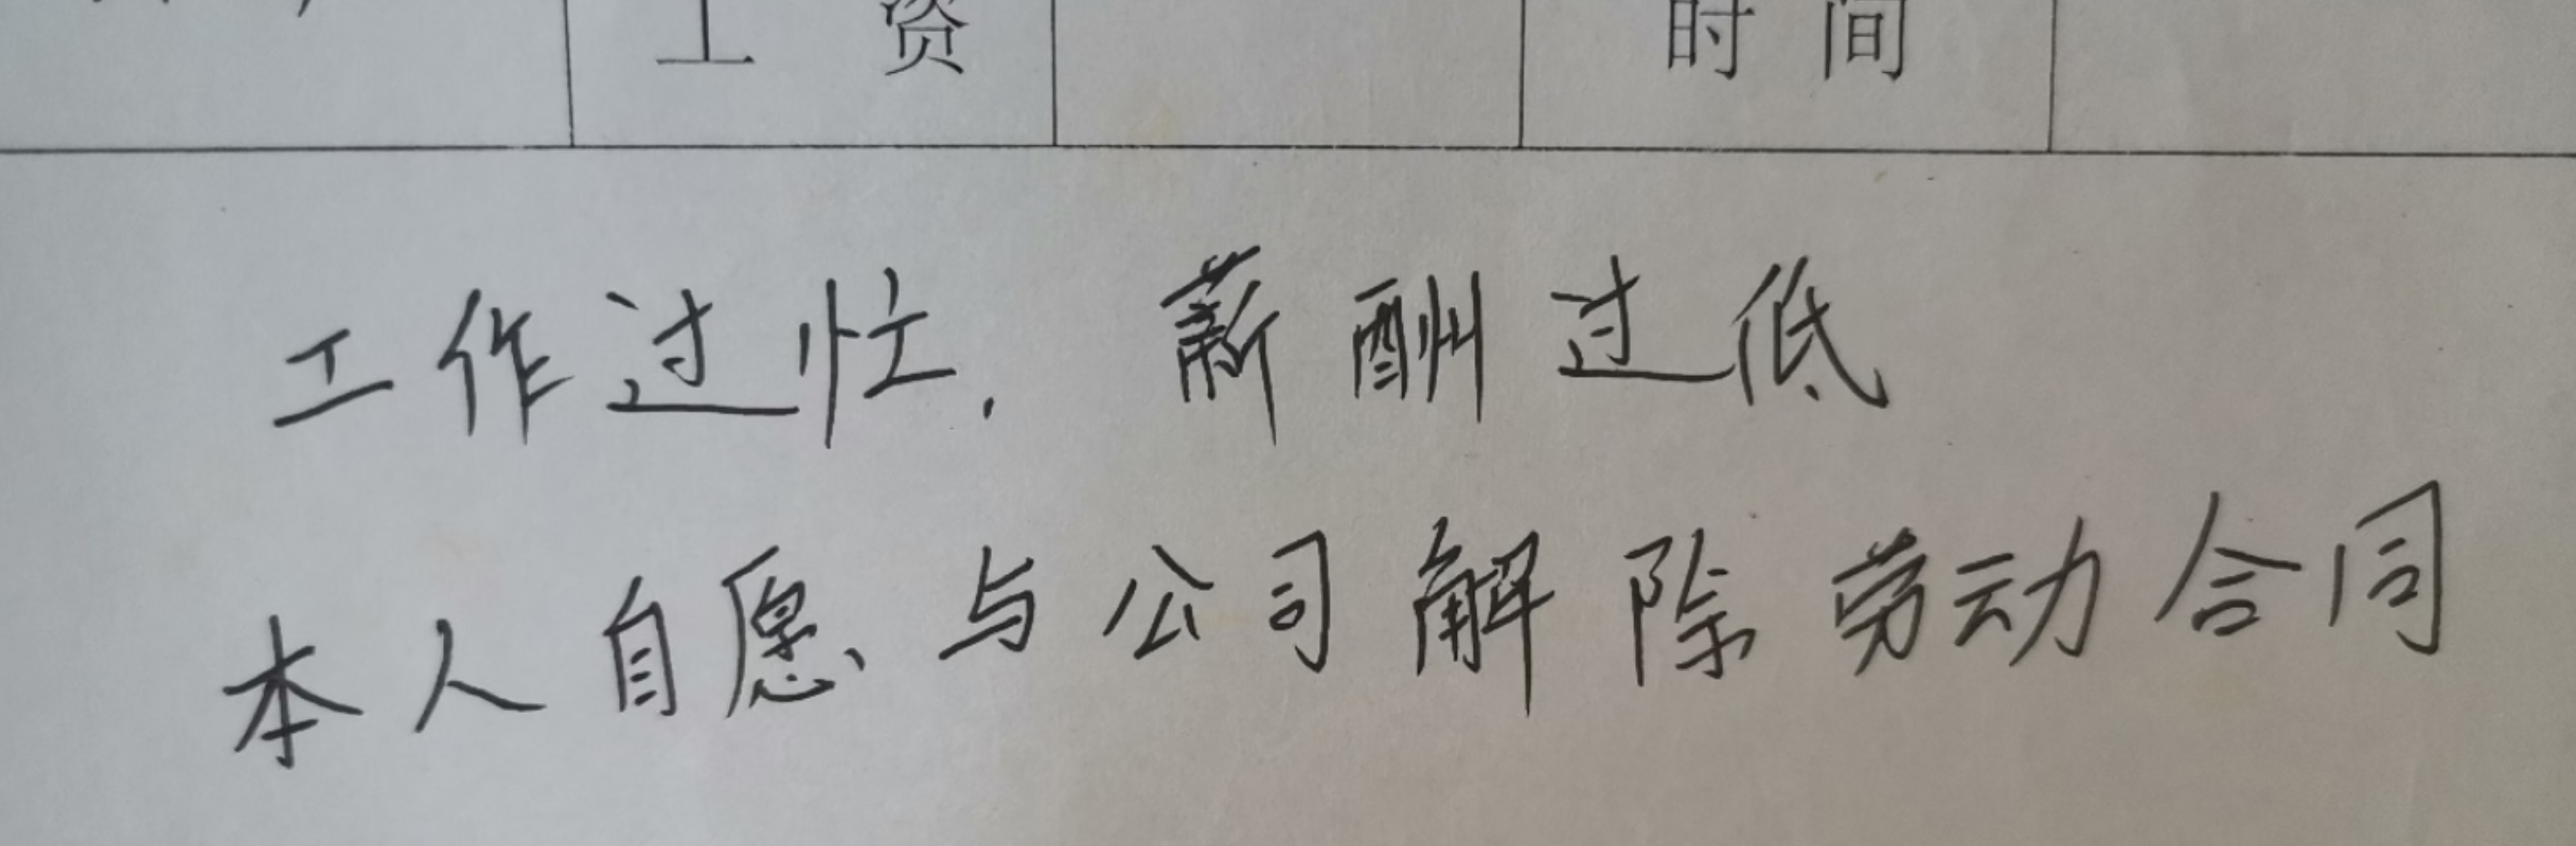 工 资 时 间
工作过忙, 薪酬过低
本人自愿、与公司解除劳动合同